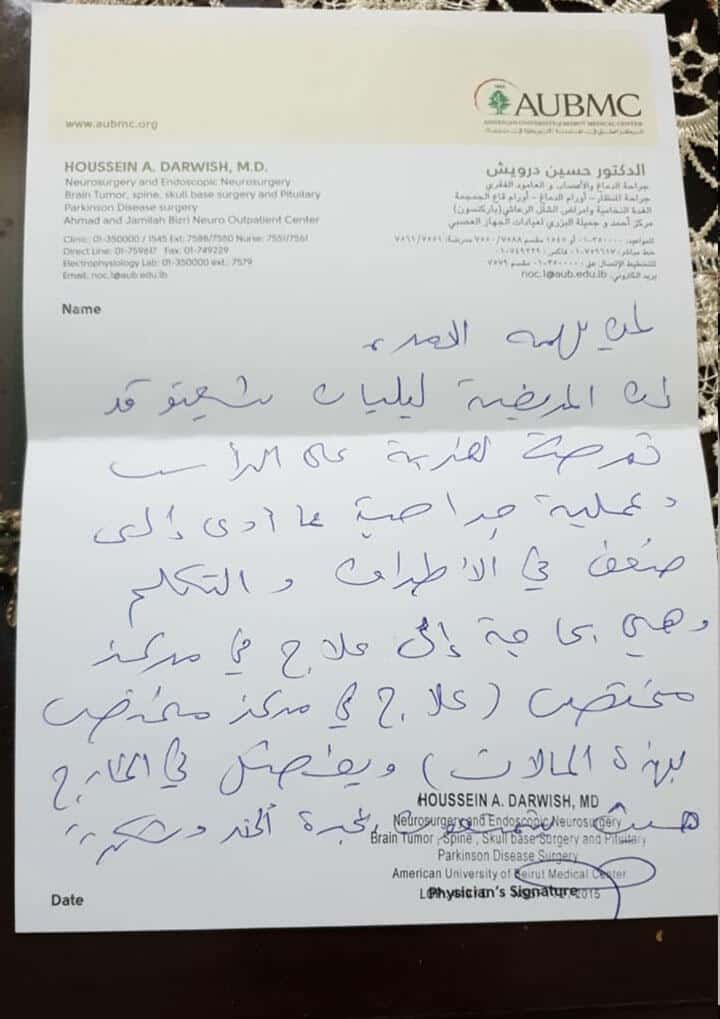 AUBMC
AMERICAN UNIVERSITY of BEIRUT MEDICAL CENTER
www.aubmc.org
HOUSSEIN A. DARWISH, M.D.
Neurosurgery and Endoscopic Neurosurgery
Brain Tumor, spine, skull base surgery and Pituitary
Parkinson Disease surgery
Ahmad and Jamilah Bizri Neuro Outpatient Center
Clinic: 01-350000 / 1545 Ext: 7588/7560 Nurse: 7551/7561
Direct Line: 01-759617 Fax: 01-749229
Electrophysiology Lab: 01-350000 ext.: 7579
Email: noc.1@aub.edu.lb
الدكتور حسين درويش
جراحة الدماغ والأعصاب و العامود الفقري
جراحة المنظار - أورام الدماغ - أورام قاع الجمجمة
الغدة النخامية وامراض الشلل الرعاشي (باركنسون)
مركز أحمد و جميلة البزري لعيادات الجهاز العصبي
بريد الكتروني: noc.1@aub.edu.lb
Name
لمن يهمه الأمر،
إن المريضة ليليان شعيتو قد
تعرضت لضربة على الرأس
وعملية جراحية مما أدى إلى
ضعف في الأطراف والتكلم
وهي بحاجة إلى علاج في مركز
مختص (علاج في مركز مختص
بهذه الحالات) ويفضل في الخارج
حيث
HOUSSEIN A. DARWISH, MD
Neurosurgery and Endoscopic Neurosurgery
Brain Tumor, Spine, Skull base Surgery and Pituitary
Parkinson Disease Surgery
American University of Beirut Medical Center
2015
Physician's Signature
Date